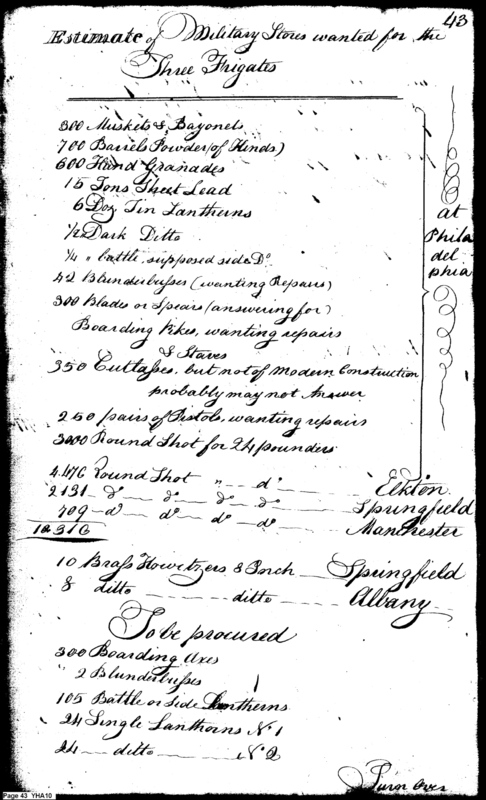 43
Estimate of Military Stores wanted for the
Three Frigates
300 Muskets & Bayonets
700 Barrels Powder (of Kinds)
600 Hand Granades
15 Tons Sheet Lead
6 Doz Tin Lantherns
1/2 Dark Ditto
1/4 " battle, supposed side Do
42 Blunderbusses (wanting Repairs)
300 Blades or Spears (answering for)
Boarding Pikes, wanting repairs
& Staves
350 Cuttasses, but not of Modern Construction
probably may not Answer
250 pairs of Pistols, wanting repairs
3000 Round Shot for 24 pounders
at
Phila
del
phia
4.476 Round Shot " do Elkton
2131 do do do do Springfield
709 do do do do Manchester
10 Brass Howitzers 8 Inch Springfield
8 ditto ditto Albany
To be procured
300 Boarding Axes
" 2 Blunderbusses
105 Battle or Side Lantherns
24 Single Lanthorns No 1
24 ditto No 2
Turn Over
Page 43 YHA10